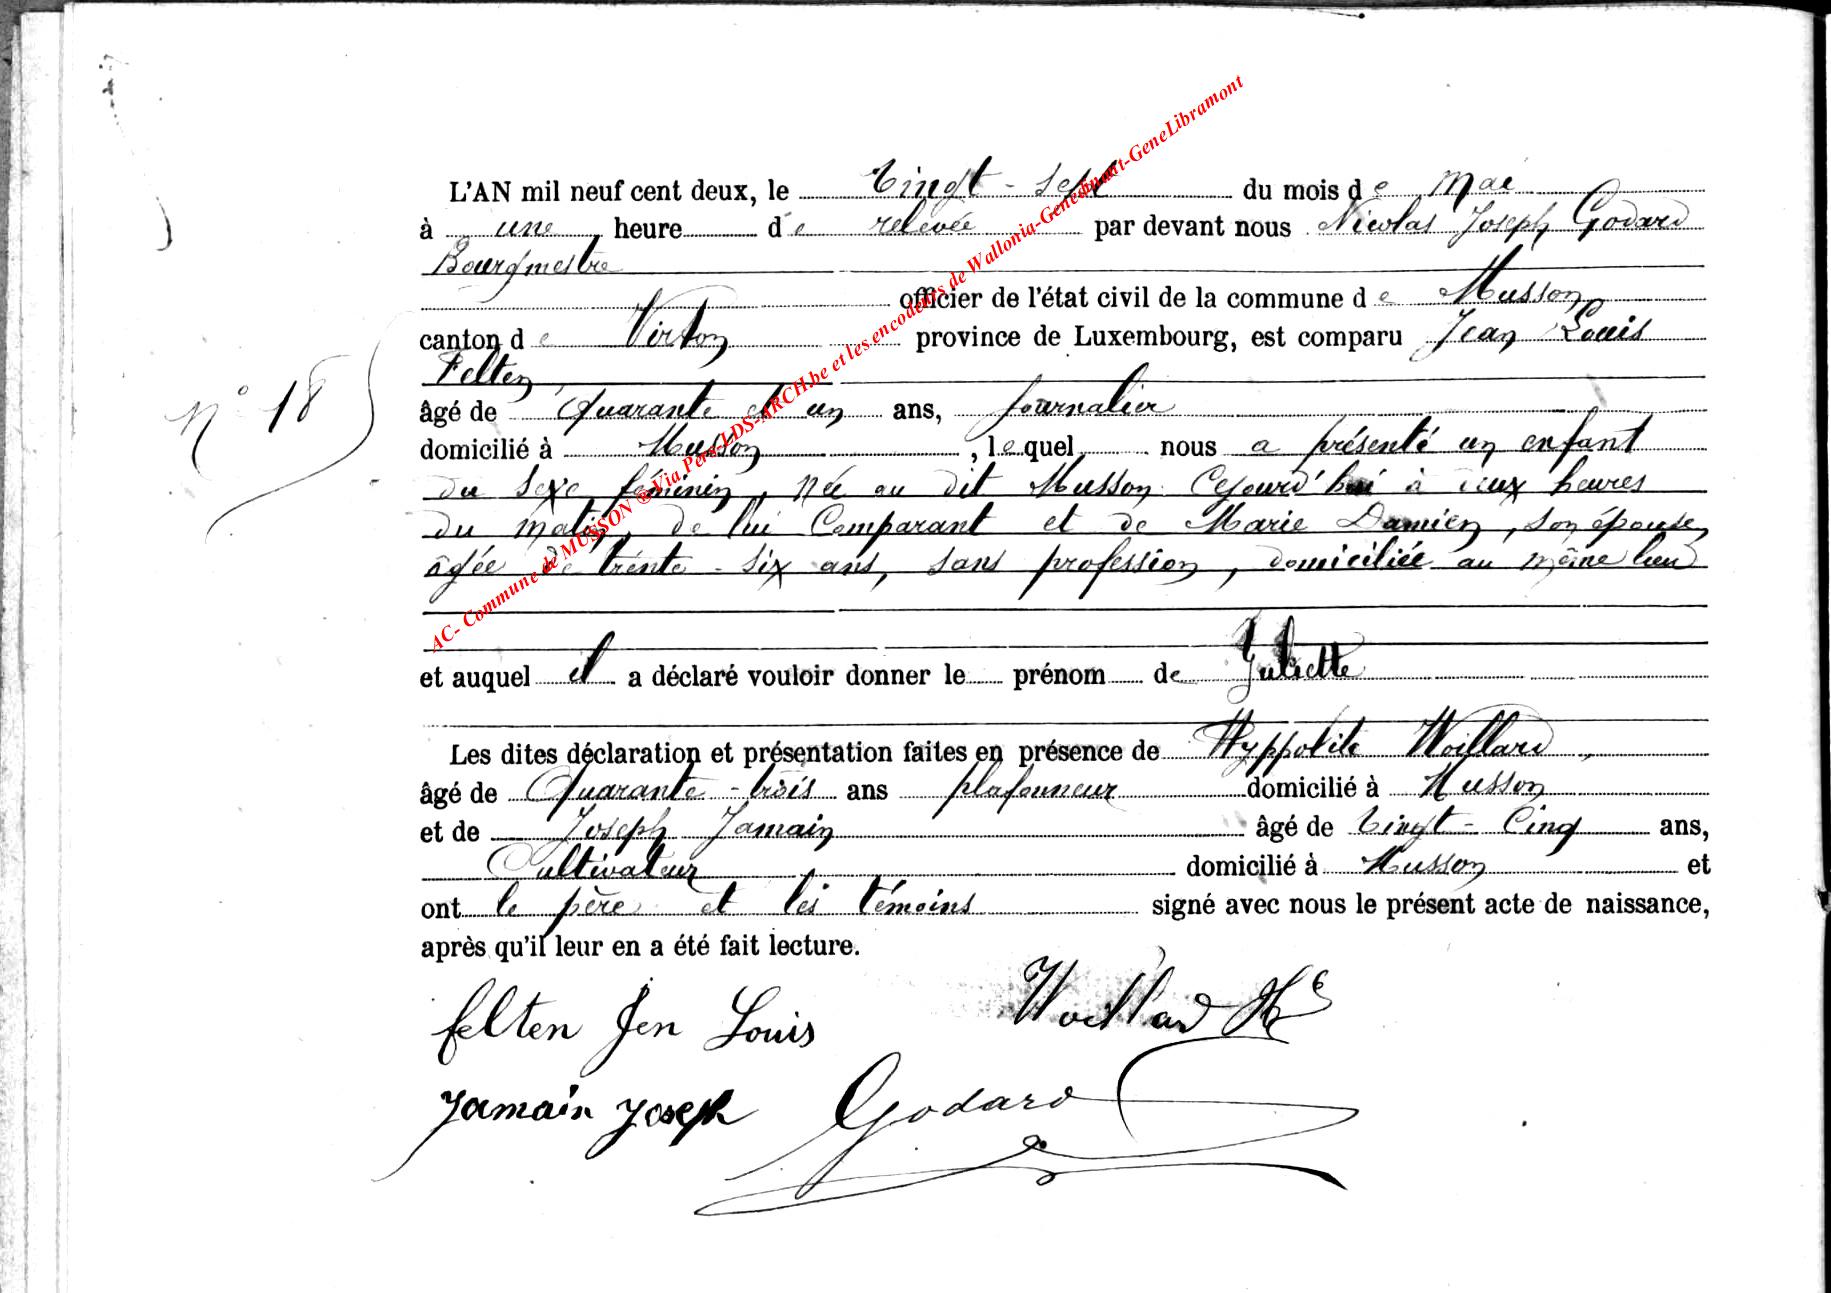 L'AN mil neuf cent deux, le vingt-sept du mois de Mai
à une heure de relevée par devant nous Nicolas Joseph Godard
Bourgmestre
officier de l'état civil de la commune de Musson
canton de Virton province de Luxembourg, est comparu Jean Louis
Felten
N° 18
âgé de Quarante et un ans, journalier
domicilié à Musson, lequel nous a présenté un enfant
du sexe féminin, née au dit Musson Cejourd'hui à deux heures
du matin, de lui Comparant et de Marie Damien, son épouse,
âgée de trente-six ans, sans profession, domiciliée au même lieu
et auquel il a déclaré vouloir donner le prénom de Juliette
Les dites déclaration et présentation faites en présence de Hyppolite Woillard,
âgé de Quarante-trois ans plafonneur domicilié à Musson
et de Joseph Jamain âgé de vingt-Cinq ans,
Cultivateur domicilié à Musson et
ont le père et les témoins signé avec nous le présent acte de naissance,
après qu'il leur en a été fait lecture.
felten Jen Louis Woillard Hte
Jamain Joseph Godard
AC- Commune de MUSSON ® Via Pers-LDS-ARCH.be et les encodeurs de Wallonia-Genedinant-GeneLibramont